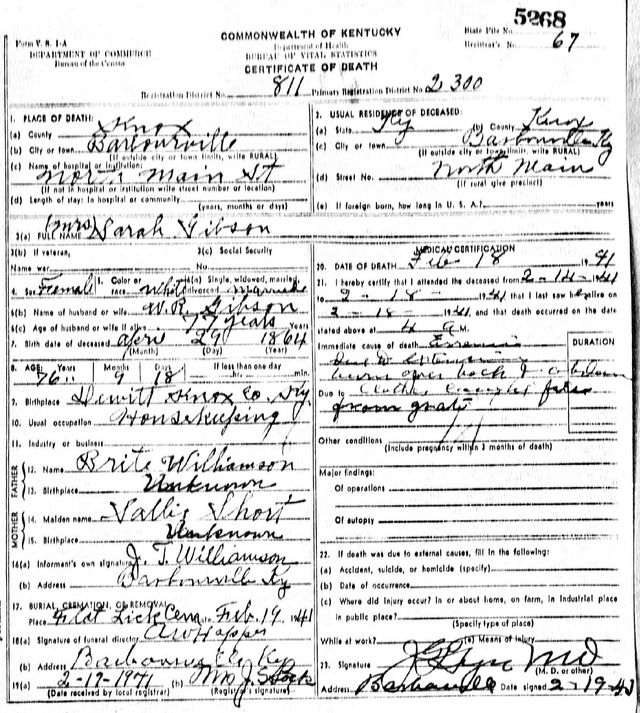 5268
COMMONWEALTH OF KENTUCKY
Form V. S. 1-A
DEPARTMENT OF COMMERCE
Bureau of the Census
Department of Health
BUREAU OF VITAL STATISTICS
CERTIFICATE OF DEATH
State File No.
Registrar's No. 67
Registration District No. 811 Primary Registration District No. 2300
1. PLACE OF DEATH:
(a) County Knox
(b) City or town Barbourville
(If outside city or town limits, write RURAL)
(c) Name of hospital or institution:
North Main St
(If not in hospital or institution write street number or location)
(d) Length of stay: In hospital or community
(years, months or days)
2. USUAL RESIDENCE OF DECEASED:
(a) State Ky (b) County Knox
(c) City or town Barbourville Ky
(If outside city or town limits, write RURAL)
(d) Street No. North Main
(If rural give precinct)
(e) If foreign born, how long in U. S. A.? years
3(a) FULL NAME (Mrs) Sarah Gibson
3(b) If veteran,
Name war
3(c) Social Security
No.
4. Sex Female 5. Color or race White 6(a) Single, widowed, married, divorced Married
6(b) Name of husband or wife W. R. Gibson
6(c) Age of husband or wife if alive 77 years Years
7. Birth date of deceased April 29 1864
(Month) (Day) (Year)
8. AGE: Years 76 Months 9 Days 18 If less than one day hr. min.
9. Birthplace Dewitt Knox Co. Ky.
10. Usual occupation Housekeeping
11. Industry or business
FATHER
12. Name Brite Williamson
13. Birthplace Unknown
MOTHER
14. Maiden name Sallie Short
15. Birthplace Unknown
16(a) Informant's own signature J. T. Williamson
(b) Address Barbourville Ky
17. BURIAL, CREMATION, OR REMOVAL
Place Flat Lick Cem Date Feb. 19 1941
18(a) Signature of funeral director
(b) Address Barbourville Ky
19(a) 2-19-1941 (b)
(Date received by local registrar) (Registrar's signature)
MEDICAL CERTIFICATION
20. DATE OF DEATH Feb 18 1941
21. I hereby certify that I attended the deceased from 2-14-1941
to 2-18-1941 that I last saw her alive on
2-18-1941 and that death occurred on the date
stated above at 4 A M.
Immediate cause of death
DURATION
burn over back &
Due to Clothes caught fire
from grate
Other conditions
(Include pregnancy within 3 months of death)
Major findings:
Of operations
Of autopsy
22. If death was due to external causes, fill in the following:
(a) Accident, suicide, or homicide (specify)
(b) Date of occurrence
(c) Where did injury occur? in or about home, on farm, in Industrial place
in public place?
(Specify type of place)
While at work? (e) Means of injury
23. Signature MD
(M. D. or other)
Address Barbourville Date signed 2-19-41